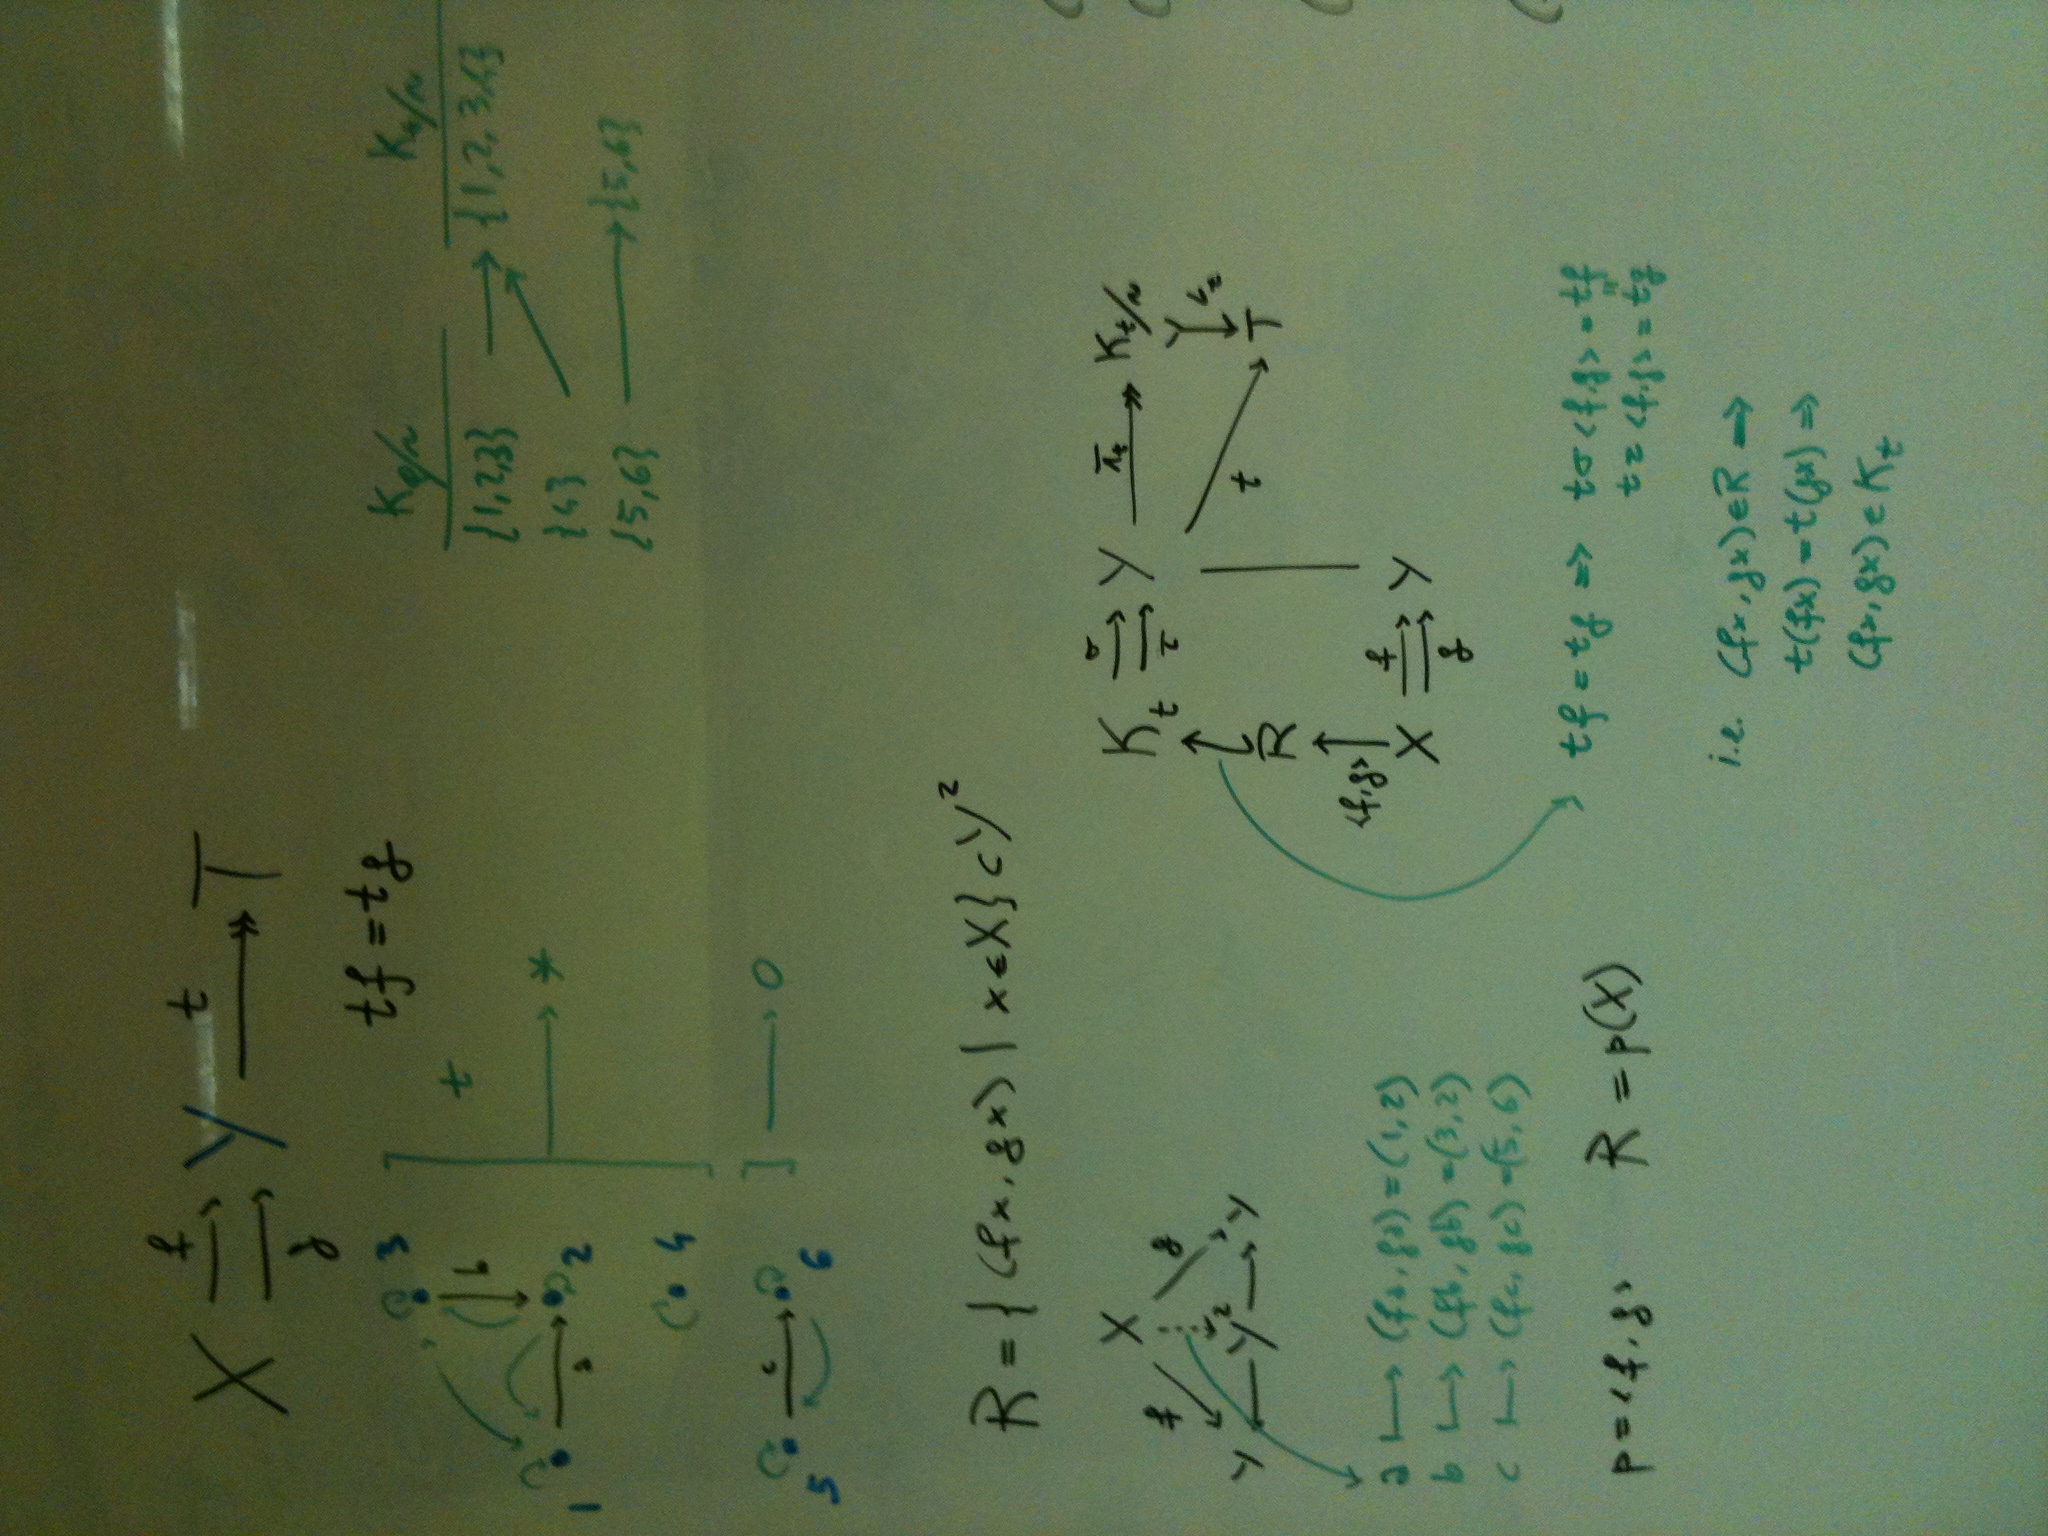 X f g Y t T
tf = tg
3
b
1 a 2
4
t
*
5 c 6
O
K / ~ Kt / ~
{1,2,3} {1,2,3,4}
{4}
{5,6} {5,6}
R = { (fx, gx) | x ∈ X } ⊂ Y²
X
f g
Y Y² Y
a ↦ (fa, ga) = (1, 2)
b ↦ (fb, gb) = (3, 2)
c ↦ (fc, gc) = (5, 6)
p = <f, g> R = p(X)
Kt σ τ Y πt Kt / ~
R t T
<f, g>
X f g Y
tf = tg ⇒ tσ <f, g> = tf
=
tτ <f, g> = tg
i.e. (fx, gx) ∈ R ⇒
t(fx) = t(gx) ⇒
(fx, gx) ∈ Kt